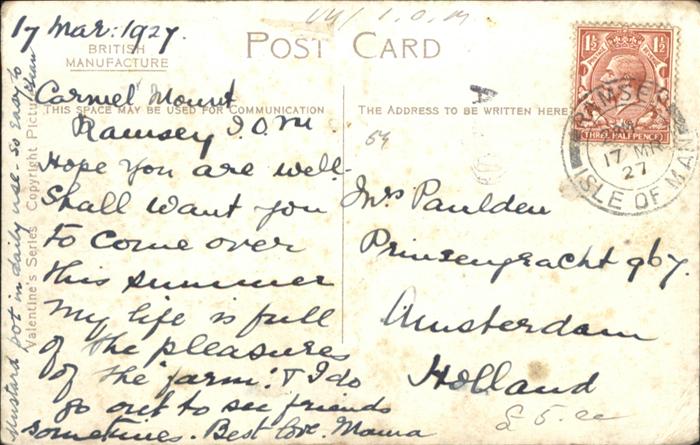 17 Mar: 1927.
BRITISH
MANUFACTURE
POST CARD
THIS SPACE MAY BE USED FOR COMMUNICATION
THE ADDRESS TO BE WRITTEN HERE
Carmel Mount
Ramsey I.O.M.
Hope you are well.
Shall want you
to come over
this summer
My life is full
of the pleasures
of "the farm". & I do
go out to see friends
sometimes. Best love. Mama
Mustard pot in daily use - so easy to
Valentine's Series Copyright Pictu
Mrs Paulden
Prinsengracht 967
Amsterdam
Holland
54
£ 5.
1½ 1½
THREE HALFPENCE
RAMSEY
17 MR
27
ISLE OF MAN
I.O.M